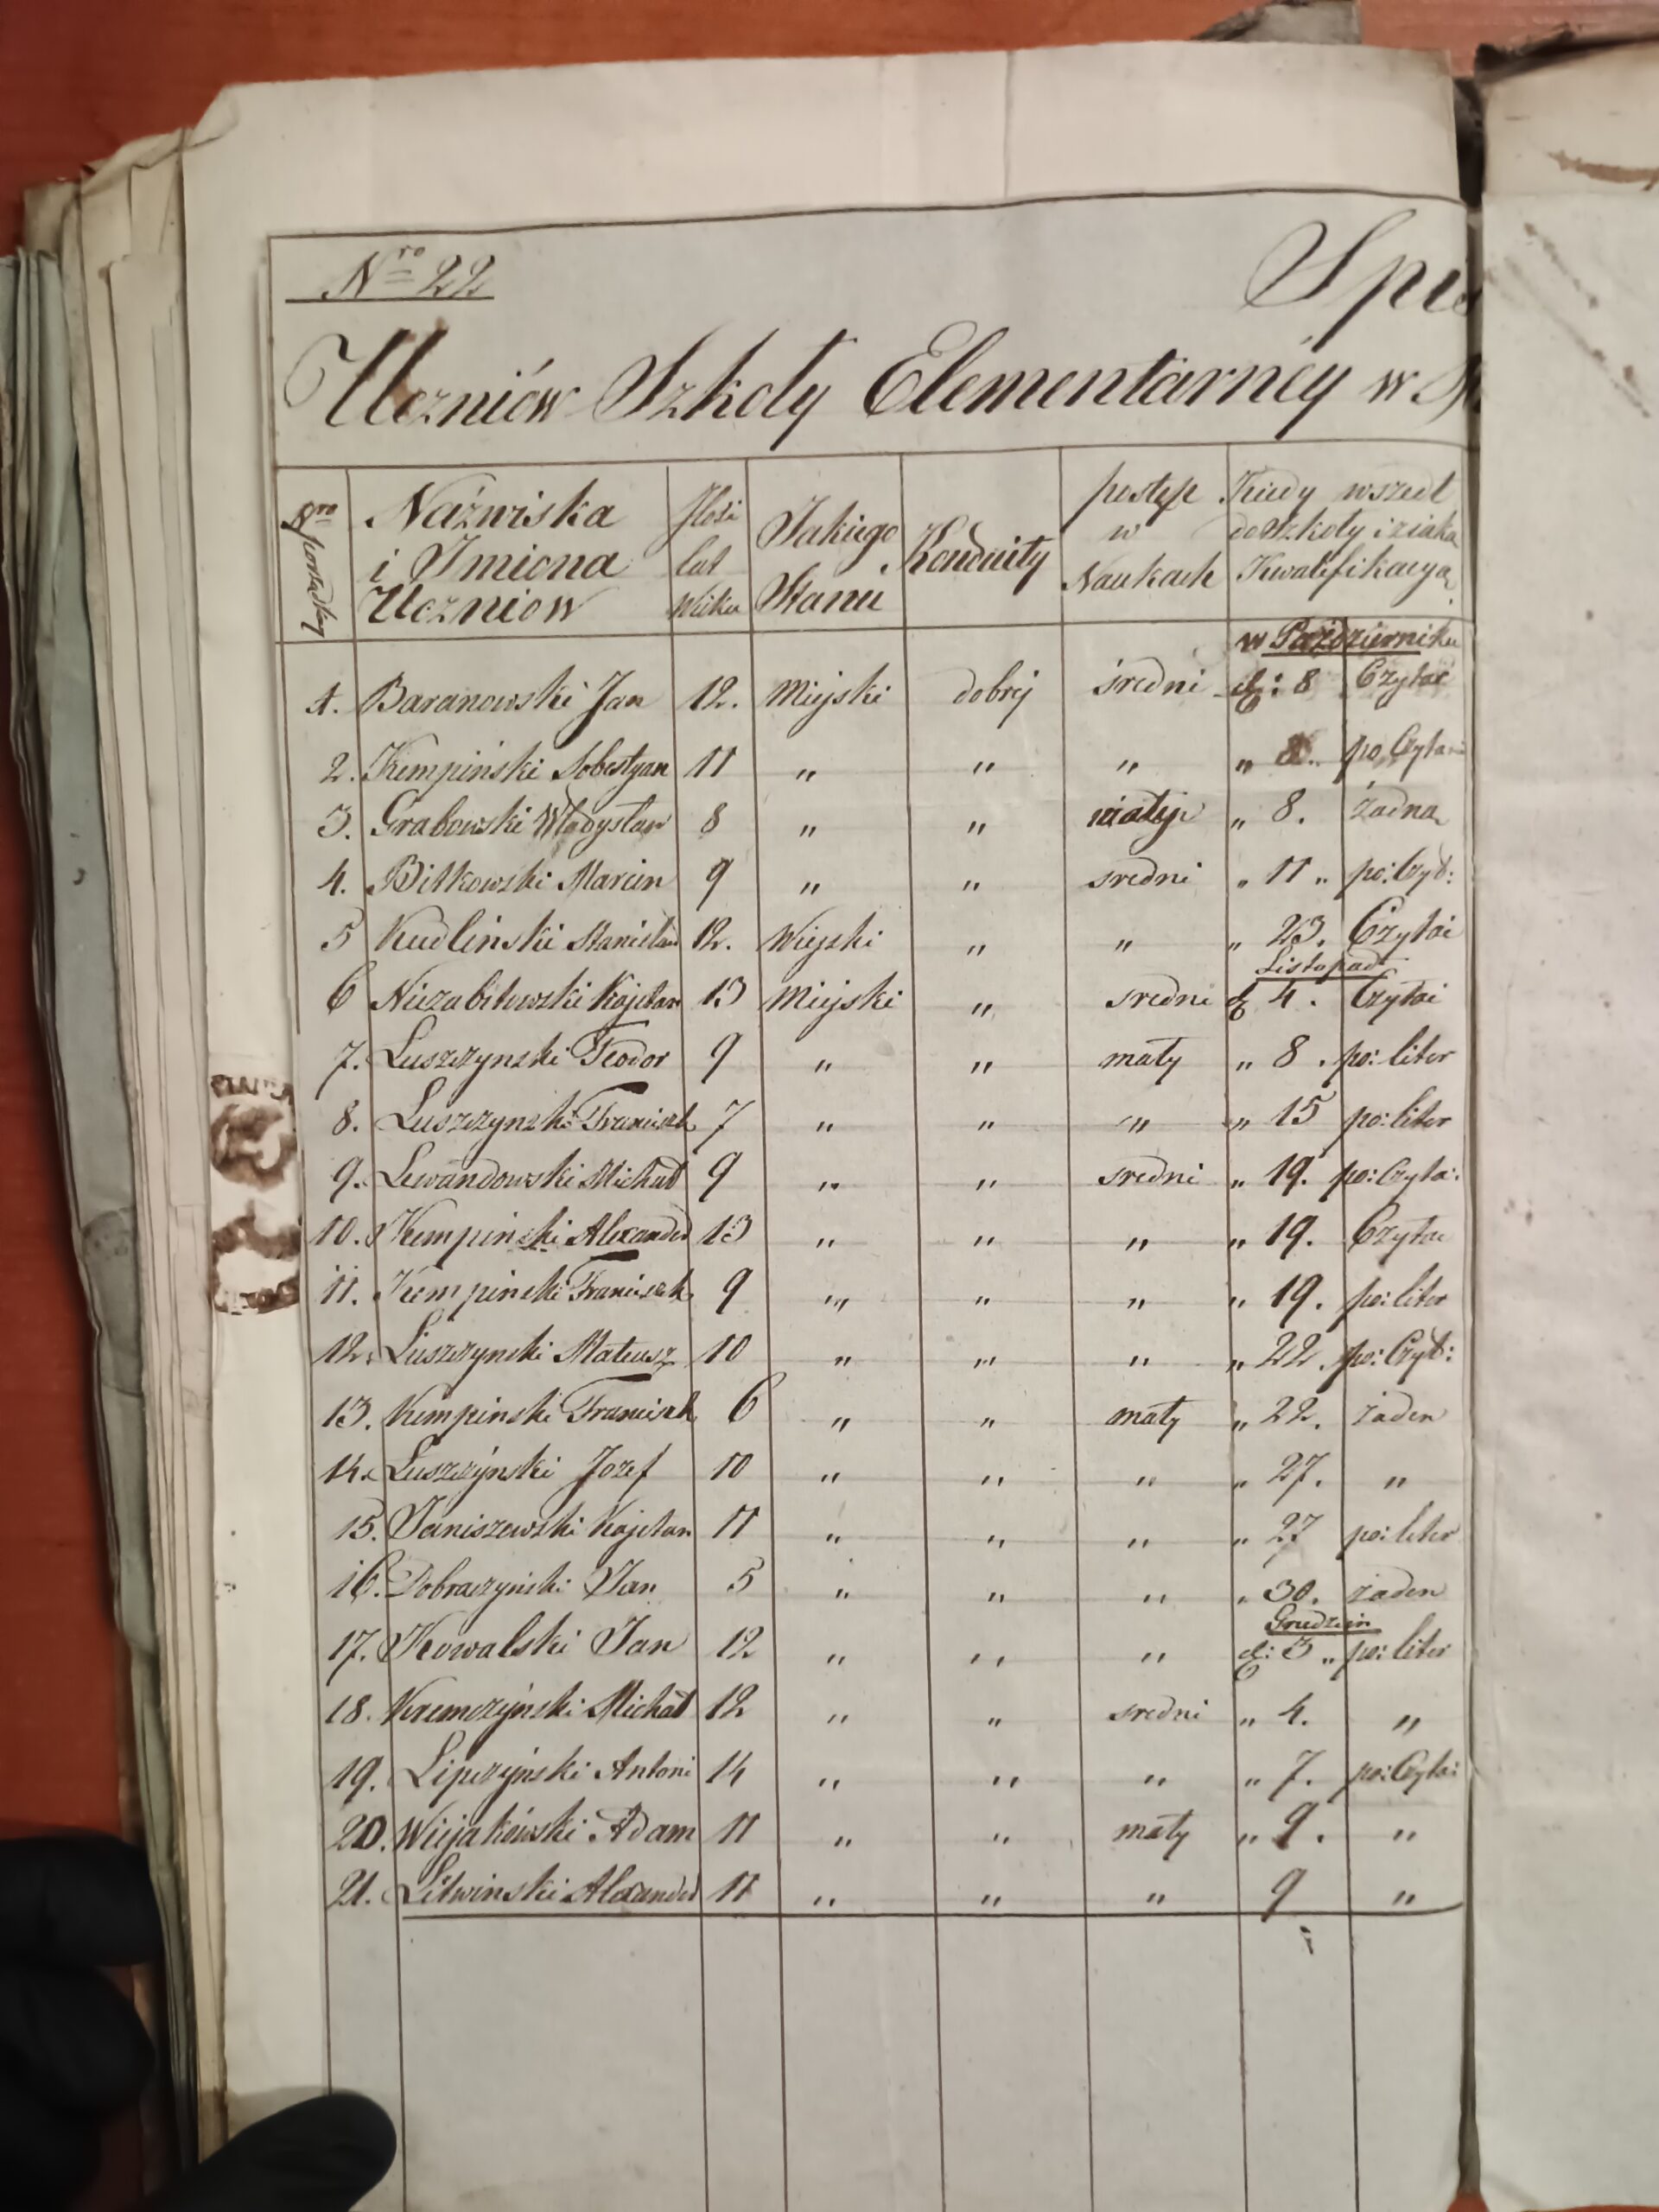 Nro 22
Spis
Uczniów Szkoły Elementarnéy w
Nro porządku | Naźwiska i Imiona Uczniow | Ilość lat wieku | Jakiego Stanu | Konduity | postęp w Naukach | Kiedy wszedł do Szkoły i z iaką Kwalifikacyą
w Październiku
1. Baranowski Jan 12. Miejski dobrej średni d: 8 Czytać
2. Kempiński Sobestyan 11 " " " " 8. po Czytani
3. Grabowski Władysław 8 " " " 8. żadna
4. Bitkowski Marcin 9 " " sredni " 11 " po: Czyt:
5 Kudlinski Stanisław 12. Wiejski " " " 23. Czytać
Listopad
6 Niezabitowski Kajetan 13 Miejski " sredni d 4. Czytać
7. Luszczynski Teodor 9 " " mały " 8. po: liter
8. Luszczynski Franciszk 7 " " " " 15 po: liter
9. Lewandowski Michał 9 " " sredni " 19. po: Czyta:
10. Kempinski Alexander 13 " " " " 19. Czytac
11. Kempinski Franciszk 9 " " " " 19. po: liter
12. Luszczynski Mateusz 10 " " " " 22. po: Czyt:
13. Kempinski Franciszk 6 " " mały " 22. żaden
14. Luszczyński Jozef 10 " " " " 27. "
15. Janiszewski Kajetan 11 " " " " 27 po: liter
16. Dobraczyński Jan 5 " " " " 30. żaden
Grudzień
17. Kowalski Jan 12 " " " d: 3 " po: liter
18. Kremczyński Michał 12 " " sredni " 4. "
19. Lipczyński Antoni 14 " " " " 7. po: Czyta:
20. Wiejakówski Adam 11 " " mały " 9. "
21. Litwinski Alexander 11 " " " 9 "